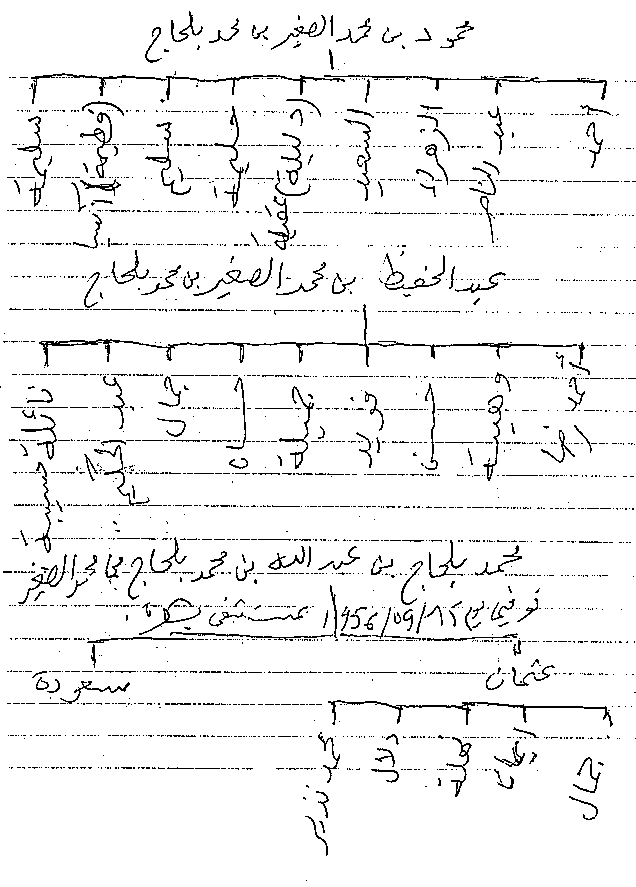 محمود بن محمد الصغير بن محمد بلحاج
أحمد
عبد الناصر
الزهرة
السعيد
(دليلة) عقيلة
حليمة
سليم
(فطيمة) آسيا
سليمة
عبد الحفيظ بن محمد الصغير بن محمد بلحاج
أحمد رضا
وهيبة
حسن
فريد
جميلة
حسان
جمال
عبد الحكيم
نائلة حسيبة
محمد بلحاج بن عبد الله بن محمد بلحاج بن محمد الصغير
توفي يوم 1956/09/12 بمستشفى بسكرة.
عثمان
مسعودة
جمال
إيمان
نهلة
دلال
محمد نذير